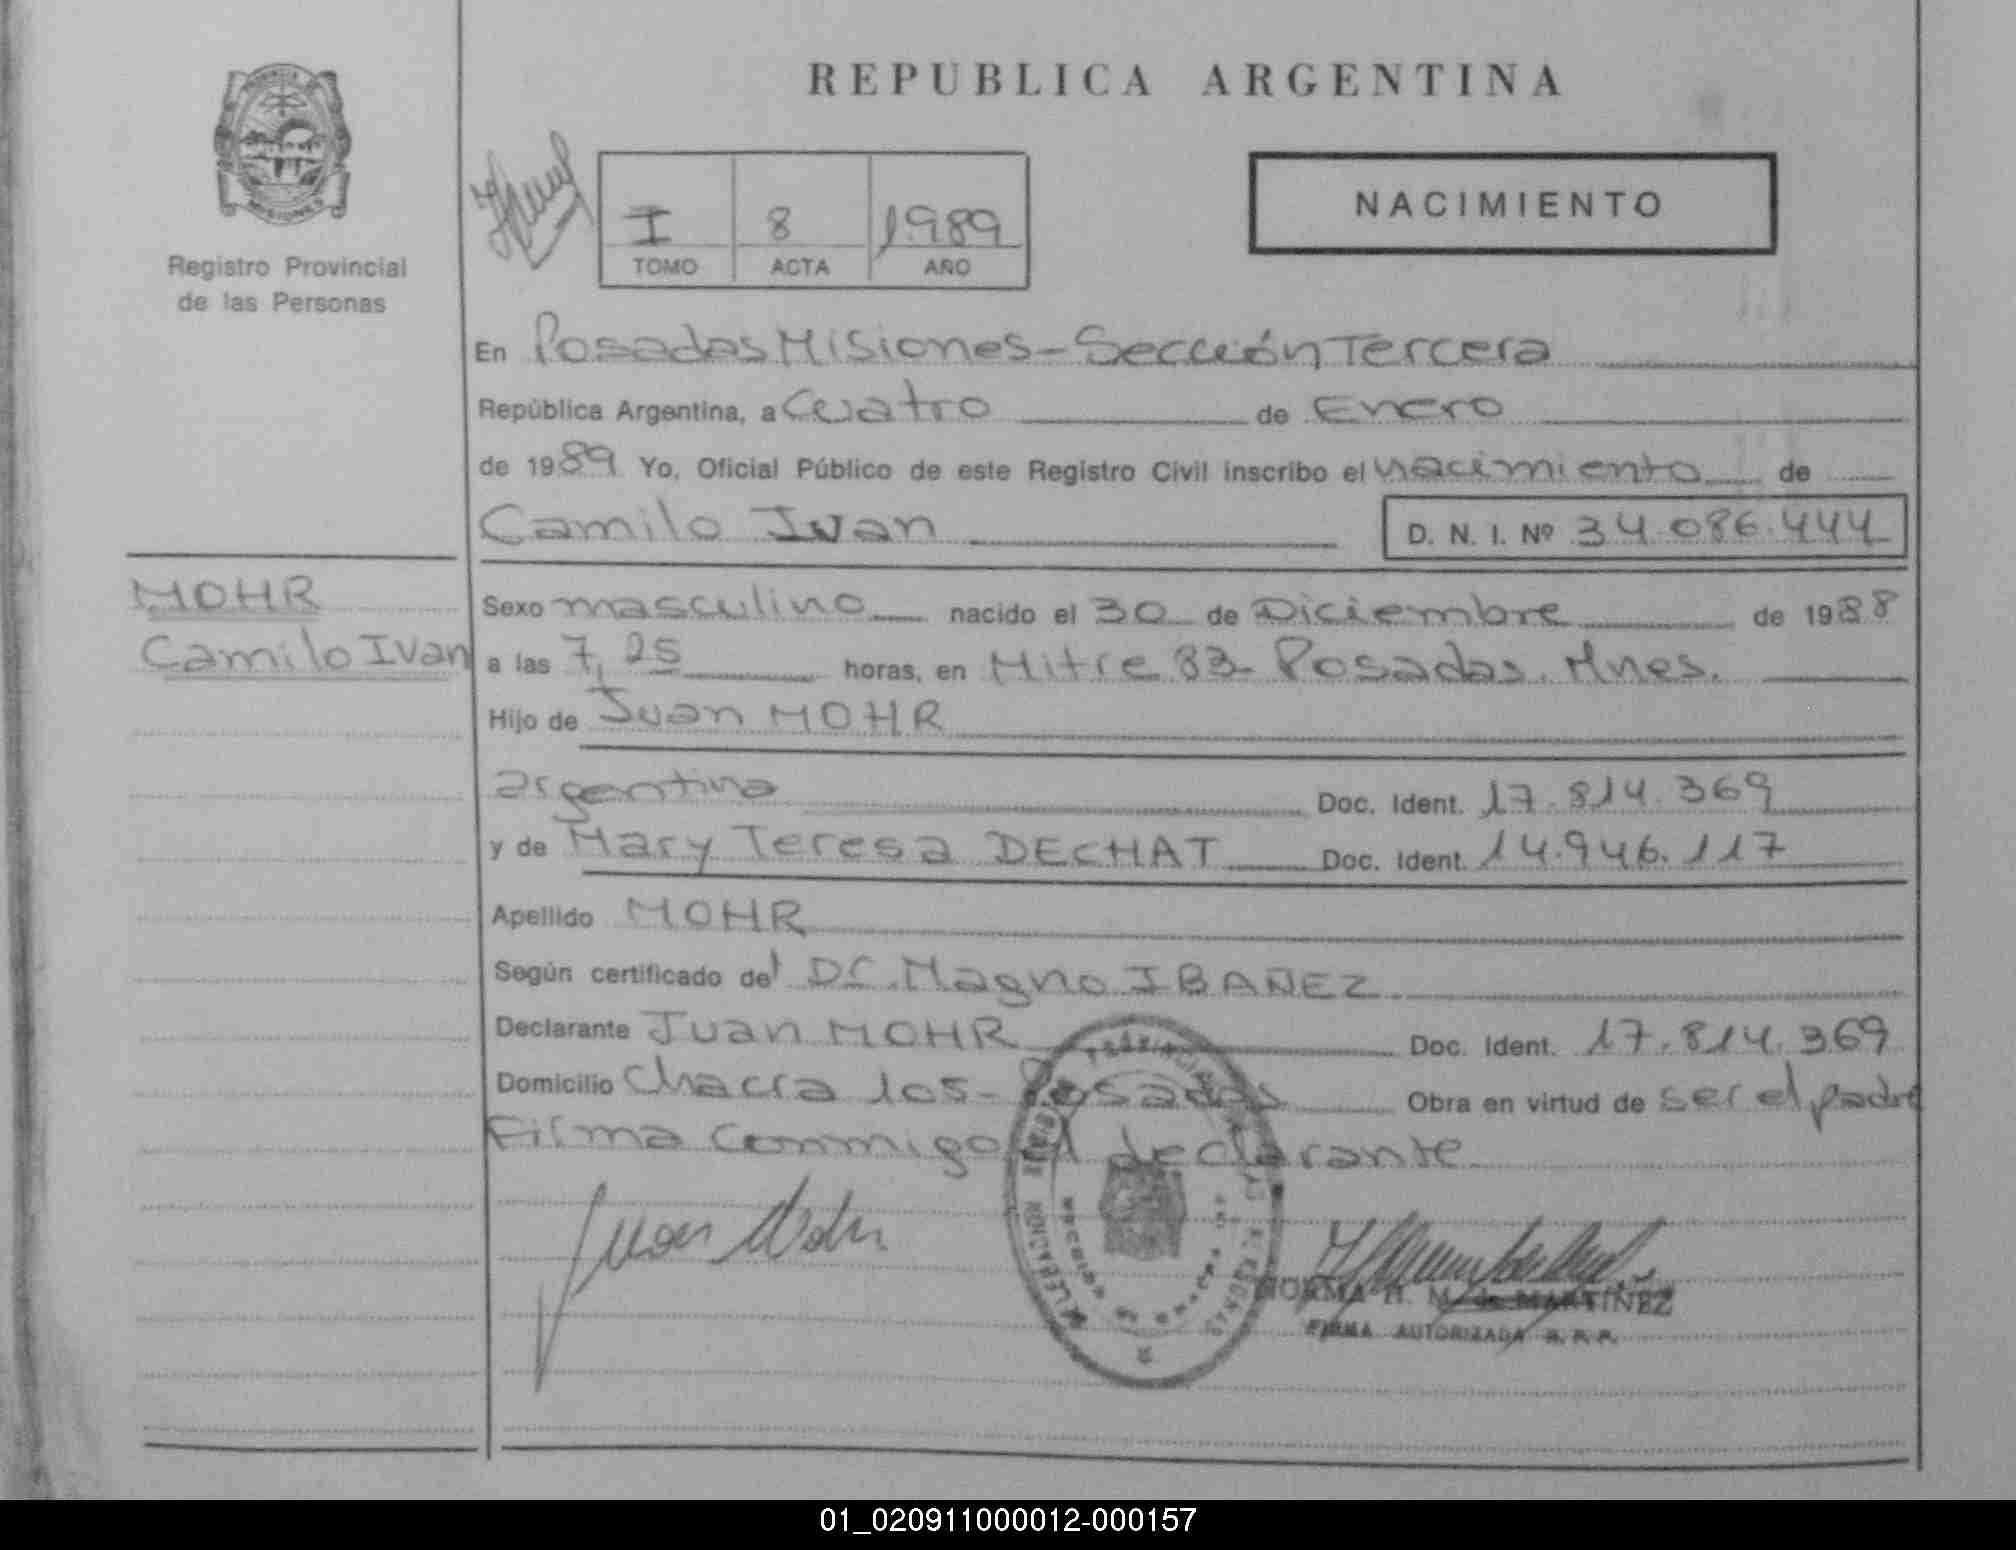 REPUBLICA ARGENTINA
PROVINCIA
MISIONES
Registro Provincial
de las Personas
I 8 1989
TOMO ACTA AÑO
NACIMIENTO
En Posadas Misiones - Sección Tercera
República Argentina, a Cuatro de Enero
de 1989 Yo, Oficial Público de este Registro Civil inscribo el nacimiento de
Camilo Ivan D. N. I. Nº 34.086.444
MOHR
Camilo Ivan
Sexo masculino nacido el 30 de Diciembre de 1988
a las 7,25 horas, en Mitre 83 - Posadas. Mnes.
Hijo de Juan MOHR
argentina Doc. Ident. 17.814.369
y de Mary Teresa DECHAT Doc. Ident. 14.946.117
Apellido MOHR
Según certificado del Dr. Magno IBAÑEZ
Declarante Juan MOHR Doc. Ident. 17.814.369
Domicilio Chacra 105 - Posadas Obra en virtud de ser el padre
Firma conmigo el declarante
Juan Mohr
NORMA H. M. de MARTINEZ
FIRMA AUTORIZADA R. P. P.
01_020911000012-000157